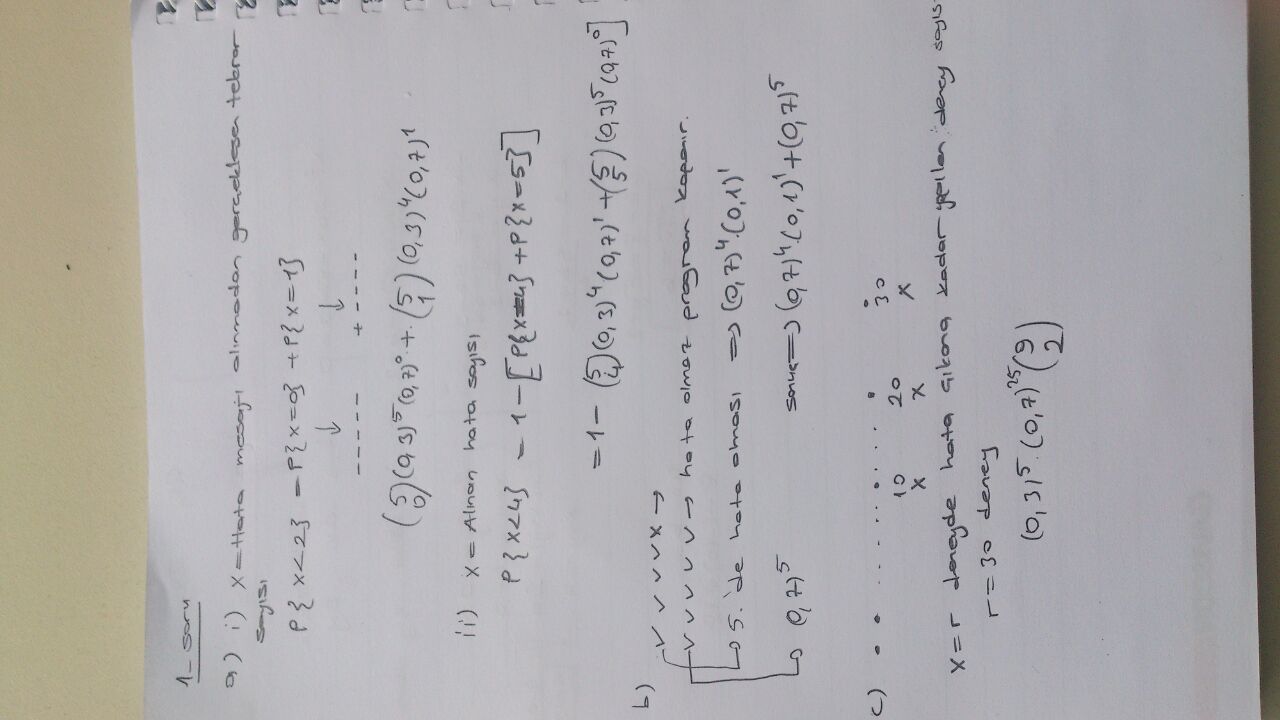 1_ soru
a) i) X = Hata mesajı alınmadan gerçekleşen tekrar
sayısı
P{ X<2} = P{X=0} + P{X=1}
↓ ↓
- - - - - + - - - -
(5 0)(0,3)^5 (0,7)^0 + (5 1)(0,3)^4 (0,7)^1
ii) X = Alınan hata sayısı
P{X<4} = 1-[P{X=4} + P{X=5}]
= 1- (5 4)(0,3)^4 (0,7)^1 + (5 5)(0,3)^5 (0,7)^0]
b)
✓ ✓ ✓ ✓ x →
✓ ✓ ✓ ✓ ✓ → hata olmaz program kapanır.
→ 5. 'de hata olması => (0,7)^4.(0,1)^1
→ 0,7)^5 sonuç => (0,7)^4.(0,1)^1 + (0,7)^5
c) . . . . . . . . . . . . .
10 20 30
x x x
X = r deneyde hata çıkana kadar yapılan deney sayıs
r = 30 deney
(0,3)^5.(0,7)^25 (9 2)